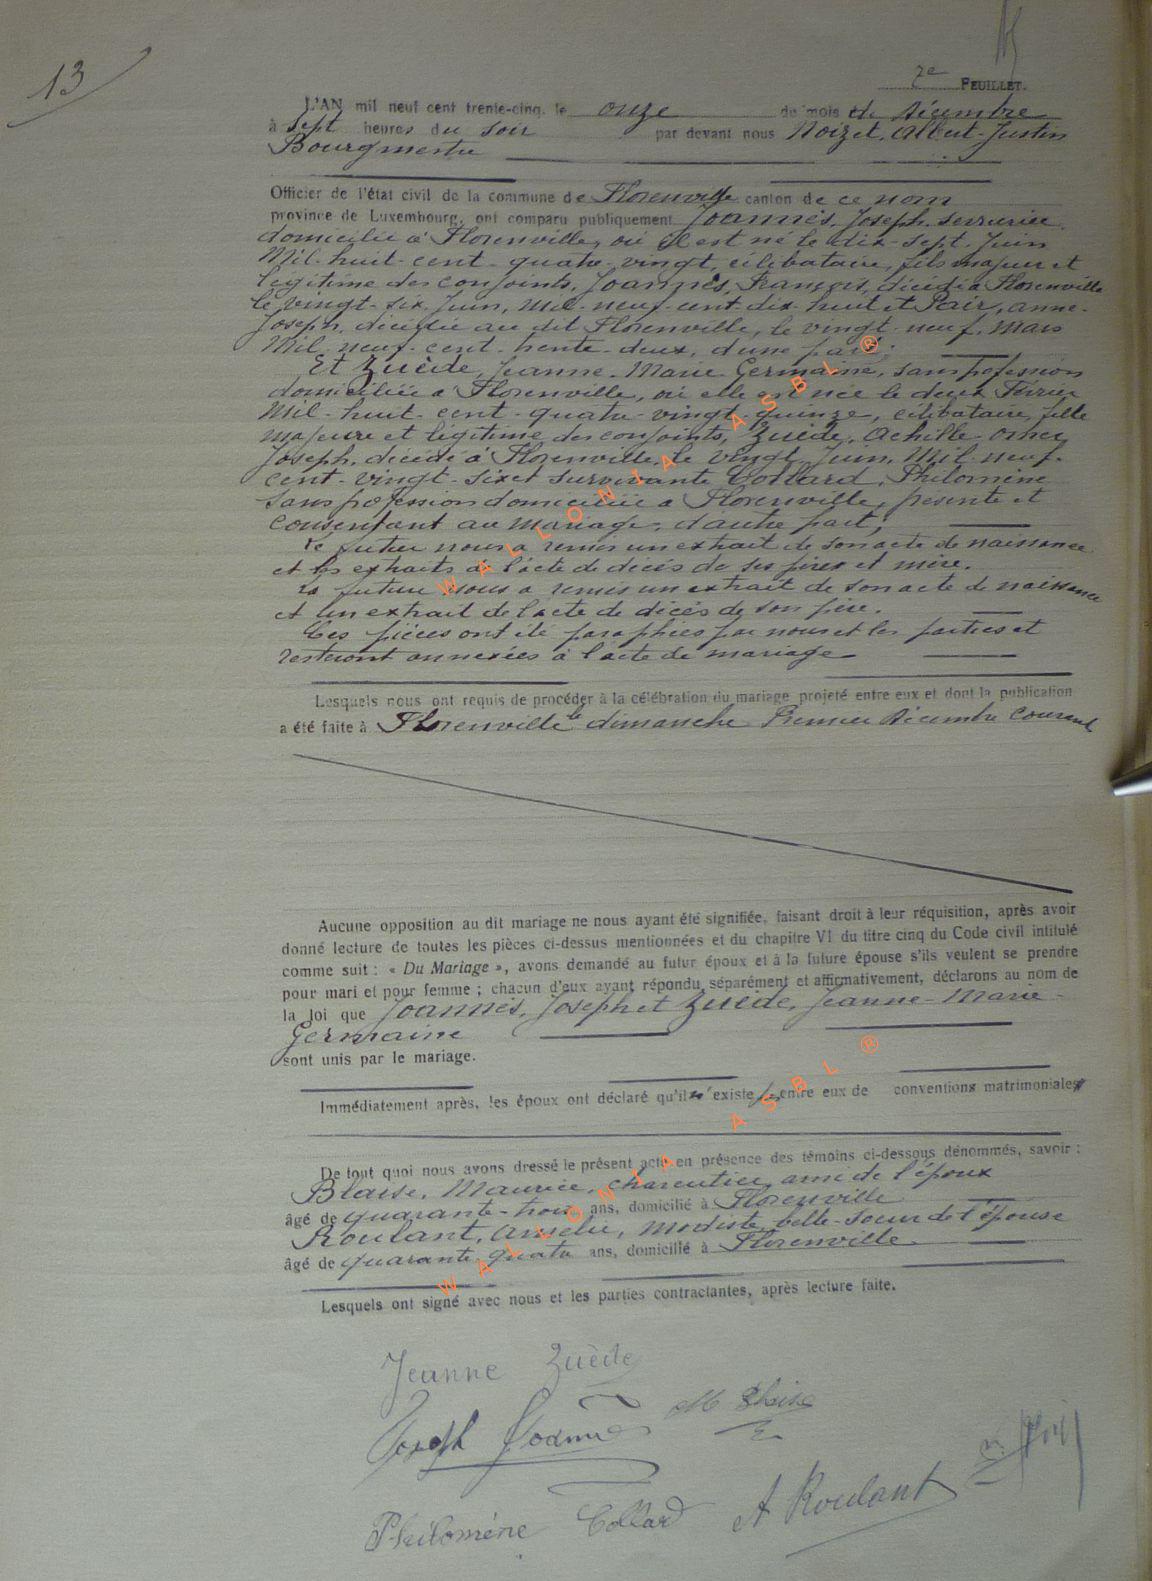 13
7e FEUILLET.
L'AN mil neuf cent trente-cinq, le onze du mois de Décembre
à Sept heures du soir par devant nous Noizet, Albert-Justin
Bourgmestre
Officier de l'état civil de la commune de Florenville canton de ce nom
province de Luxembourg, ont comparu publiquement Joannès, Joseph, serrurier
domicilié à Florenville, où il est né le dix-sept Juin
Mil-huit-cent-quatre-vingt, célibataire, fils majeur et
légitime des conjoints, Joannès, François, décédé à Florenville
le vingt-six Juin, mil-neuf-cent-dix-huit et Pair, anne-
Joseph, décédée au dit Florenville, le vingt-neuf Mars
Mil-neuf-cent-trente-deux, d'une part;
Et Zuède, Jeanne-Marie Germaine, sans profession
domiciliée à Florenville, où elle est née le deux Février
Mil-huit-cent-quatre-vingt-quinze, célibataire, fille
majeure et légitime des conjoints, Zuède, Achille-Omer,
Joseph, décédé à Florenville, le vingt Juin, Mil-neuf-
cent-vingt-six et survivante Collard, Philomène
sans profession domiciliée à Florenville, présente et
consentant au mariage, d'autre part;
Le futur nous a remis un extrait de son acte de naissance
et les extraits de l'acte de décès de ses père et mère.
La future nous a remis un extrait de son acte de naissance
et un extrait de l'acte de décès de son père.
Ces pièces ont été paraphées par nous et les parties et
resteront annexées à l'acte de mariage
Lesquels nous ont requis de procéder à la célébration du mariage projeté entre eux et dont la publication
a été faite à Florenville le dimanche Premier Décembre Courant
Aucune opposition au dit mariage ne nous ayant été signifiée, faisant droit à leur réquisition, après avoir
donné lecture de toutes les pièces ci-dessus mentionnées et du chapitre VI du titre cinq du Code civil intitulé
comme suit : « Du Mariage », avons demandé au futur époux et à la future épouse s'ils veulent se prendre
pour mari et pour femme ; chacun d'eux ayant répondu séparément et affirmativement, déclarons au nom de
la loi que Joannès, Joseph et Zuède, Jeanne-Marie-
Germaine
sont unis par le mariage.
Immédiatement après, les époux ont déclaré qu'il n'existe pas entre eux de conventions matrimoniales
De tout quoi nous avons dressé le présent acte en présence des témoins ci-dessous dénommés, savoir :
Blaise, Maurice, charentier, ami de l'époux
âgé de quarante-trois ans, domicilié à Florenville
Roulant, Amélie, modiste, belle-soeur de l'épouse
âgé de quarante quatre ans, domicilié à Florenville
Lesquels ont signé avec nous et les parties contractantes, après lecture faite.
Jeanne Zuède
M Blaise
Joseph Joannès
Philomène Collard A Roulant
WALLONIA ASBL ®
WALLONIA ASBL ®